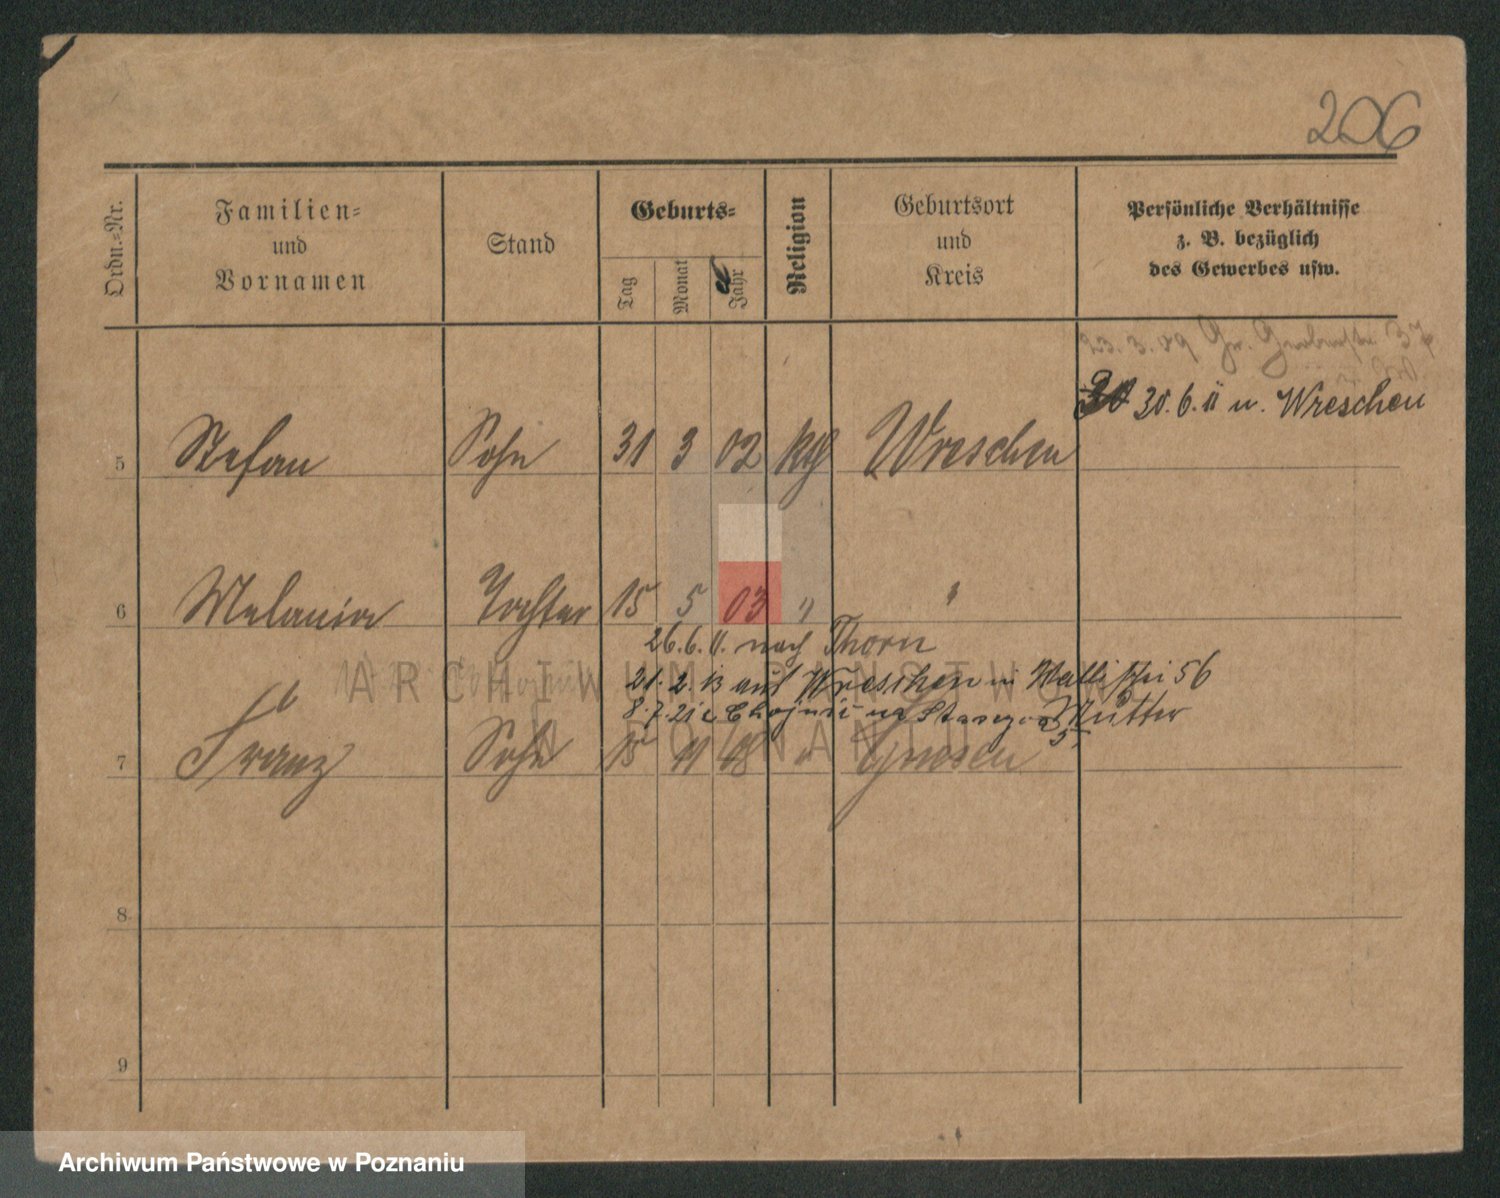 206
Ordn.=Nr.
Familien=
und
Vornamen
Stand
Geburts=
Tag
Monat
Jahr
Religion
Geburtsort
und
Kreis
Persönliche Verhältnisse
z. B. bezüglich
des Gewerbes usw.
23. 3. 09 Gr. 37
30.6.11 n. Wreschen
5 Stefan Sohn 31 3 02 kth Wreschen
6 Melania Tochter 15 5 03 " "
26.6.11. nach Thorn
21. 2. 13 aus Wreschen in Wallischei 56
8.7.21 Mutter
7 Franz Sohn 15 11 08 " Gnesen
8
9
ARCHIWUM PAŃSTWOWE
W POZNANIU
Archiwum Państwowe w Poznaniu